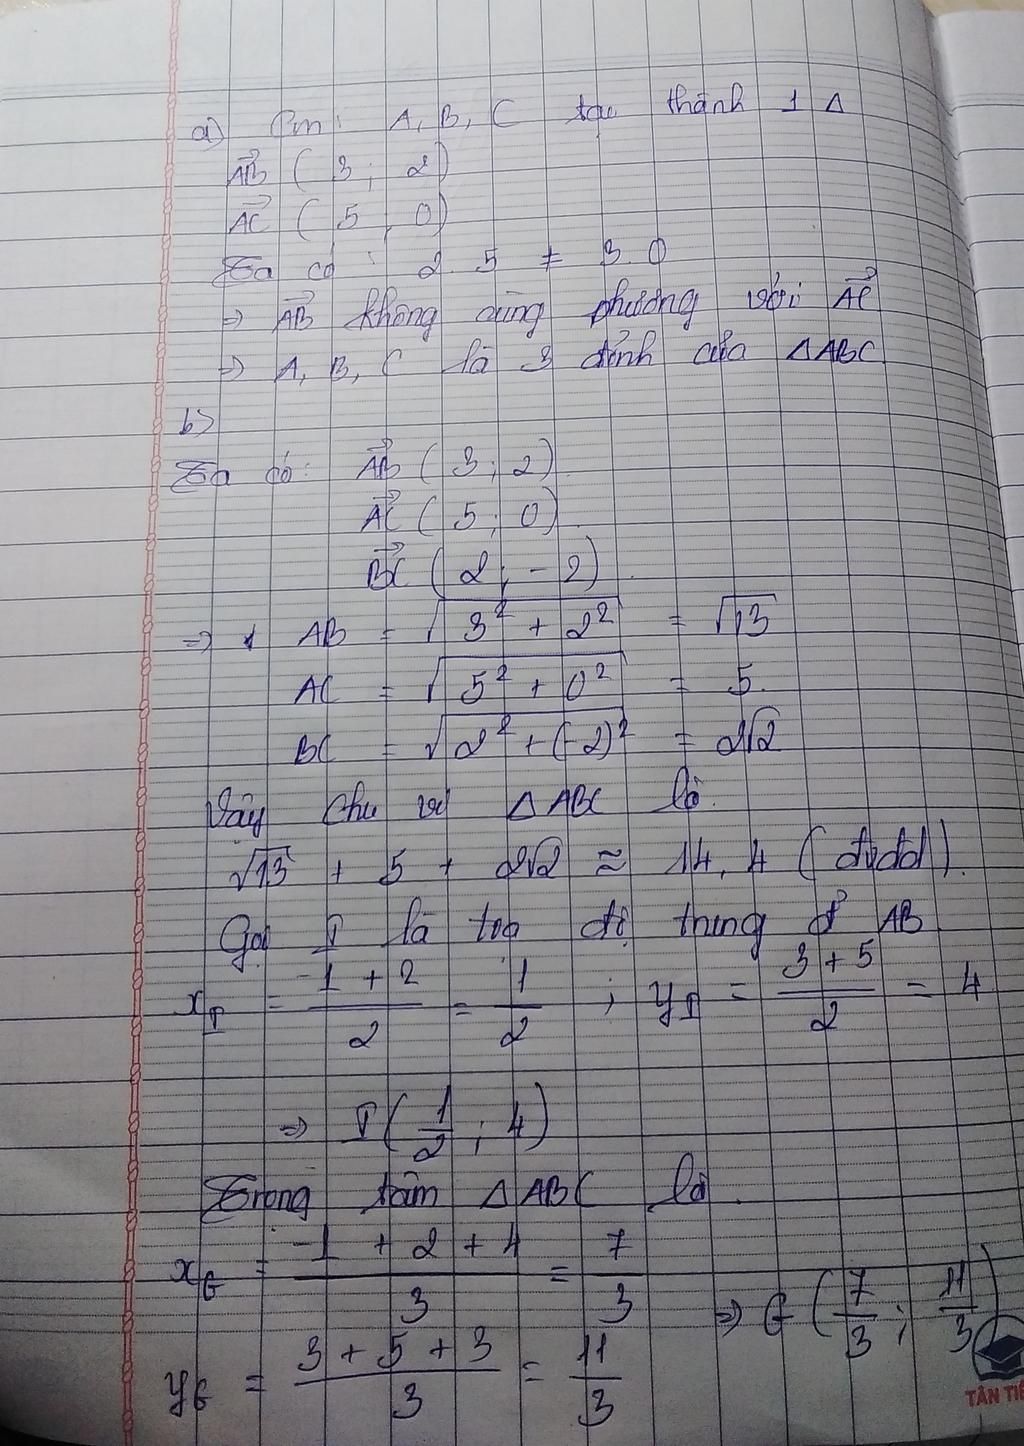 a) Cm: A, B, C tạo thành 1 Δ
AB→ ( 3 ; 2 )
AC→ ( 5 ; 0 )
Ta có : 2 . 5 ≠ 3 . 0
=> AB→ không cùng phương với AC→
=> A, B, C là 3 đỉnh của ΔABC
b)
Ta có: AB→ ( 3 ; 2 )
AC→ ( 5 ; 0 )
BC→ ( 2 ; - 2 )
=> AB = √(3² + 2²) = √13
AC = √(5² + 0²) = 5.
BC = √(2² + (-2)²) = 2√2
Vậy chu vi ΔABC là
√13 + 5 + 2√2 ≈ 14,4 ( đvđd ).
Gọi I là toạ độ trung đ' AB
x_I = (-1 + 2)/2 = 1/2 ; y_I = (3 + 5)/2 = 4
=> I ( 1/2 ; 4 )
Trong tâm ΔABC là
x_G = (-1 + 2 + 4)/3 = 7/3
=> G ( 7/3 ; 11/3 )
y_G = (3 + 5 + 3)/3 = 11/3
TÂN TIẾ